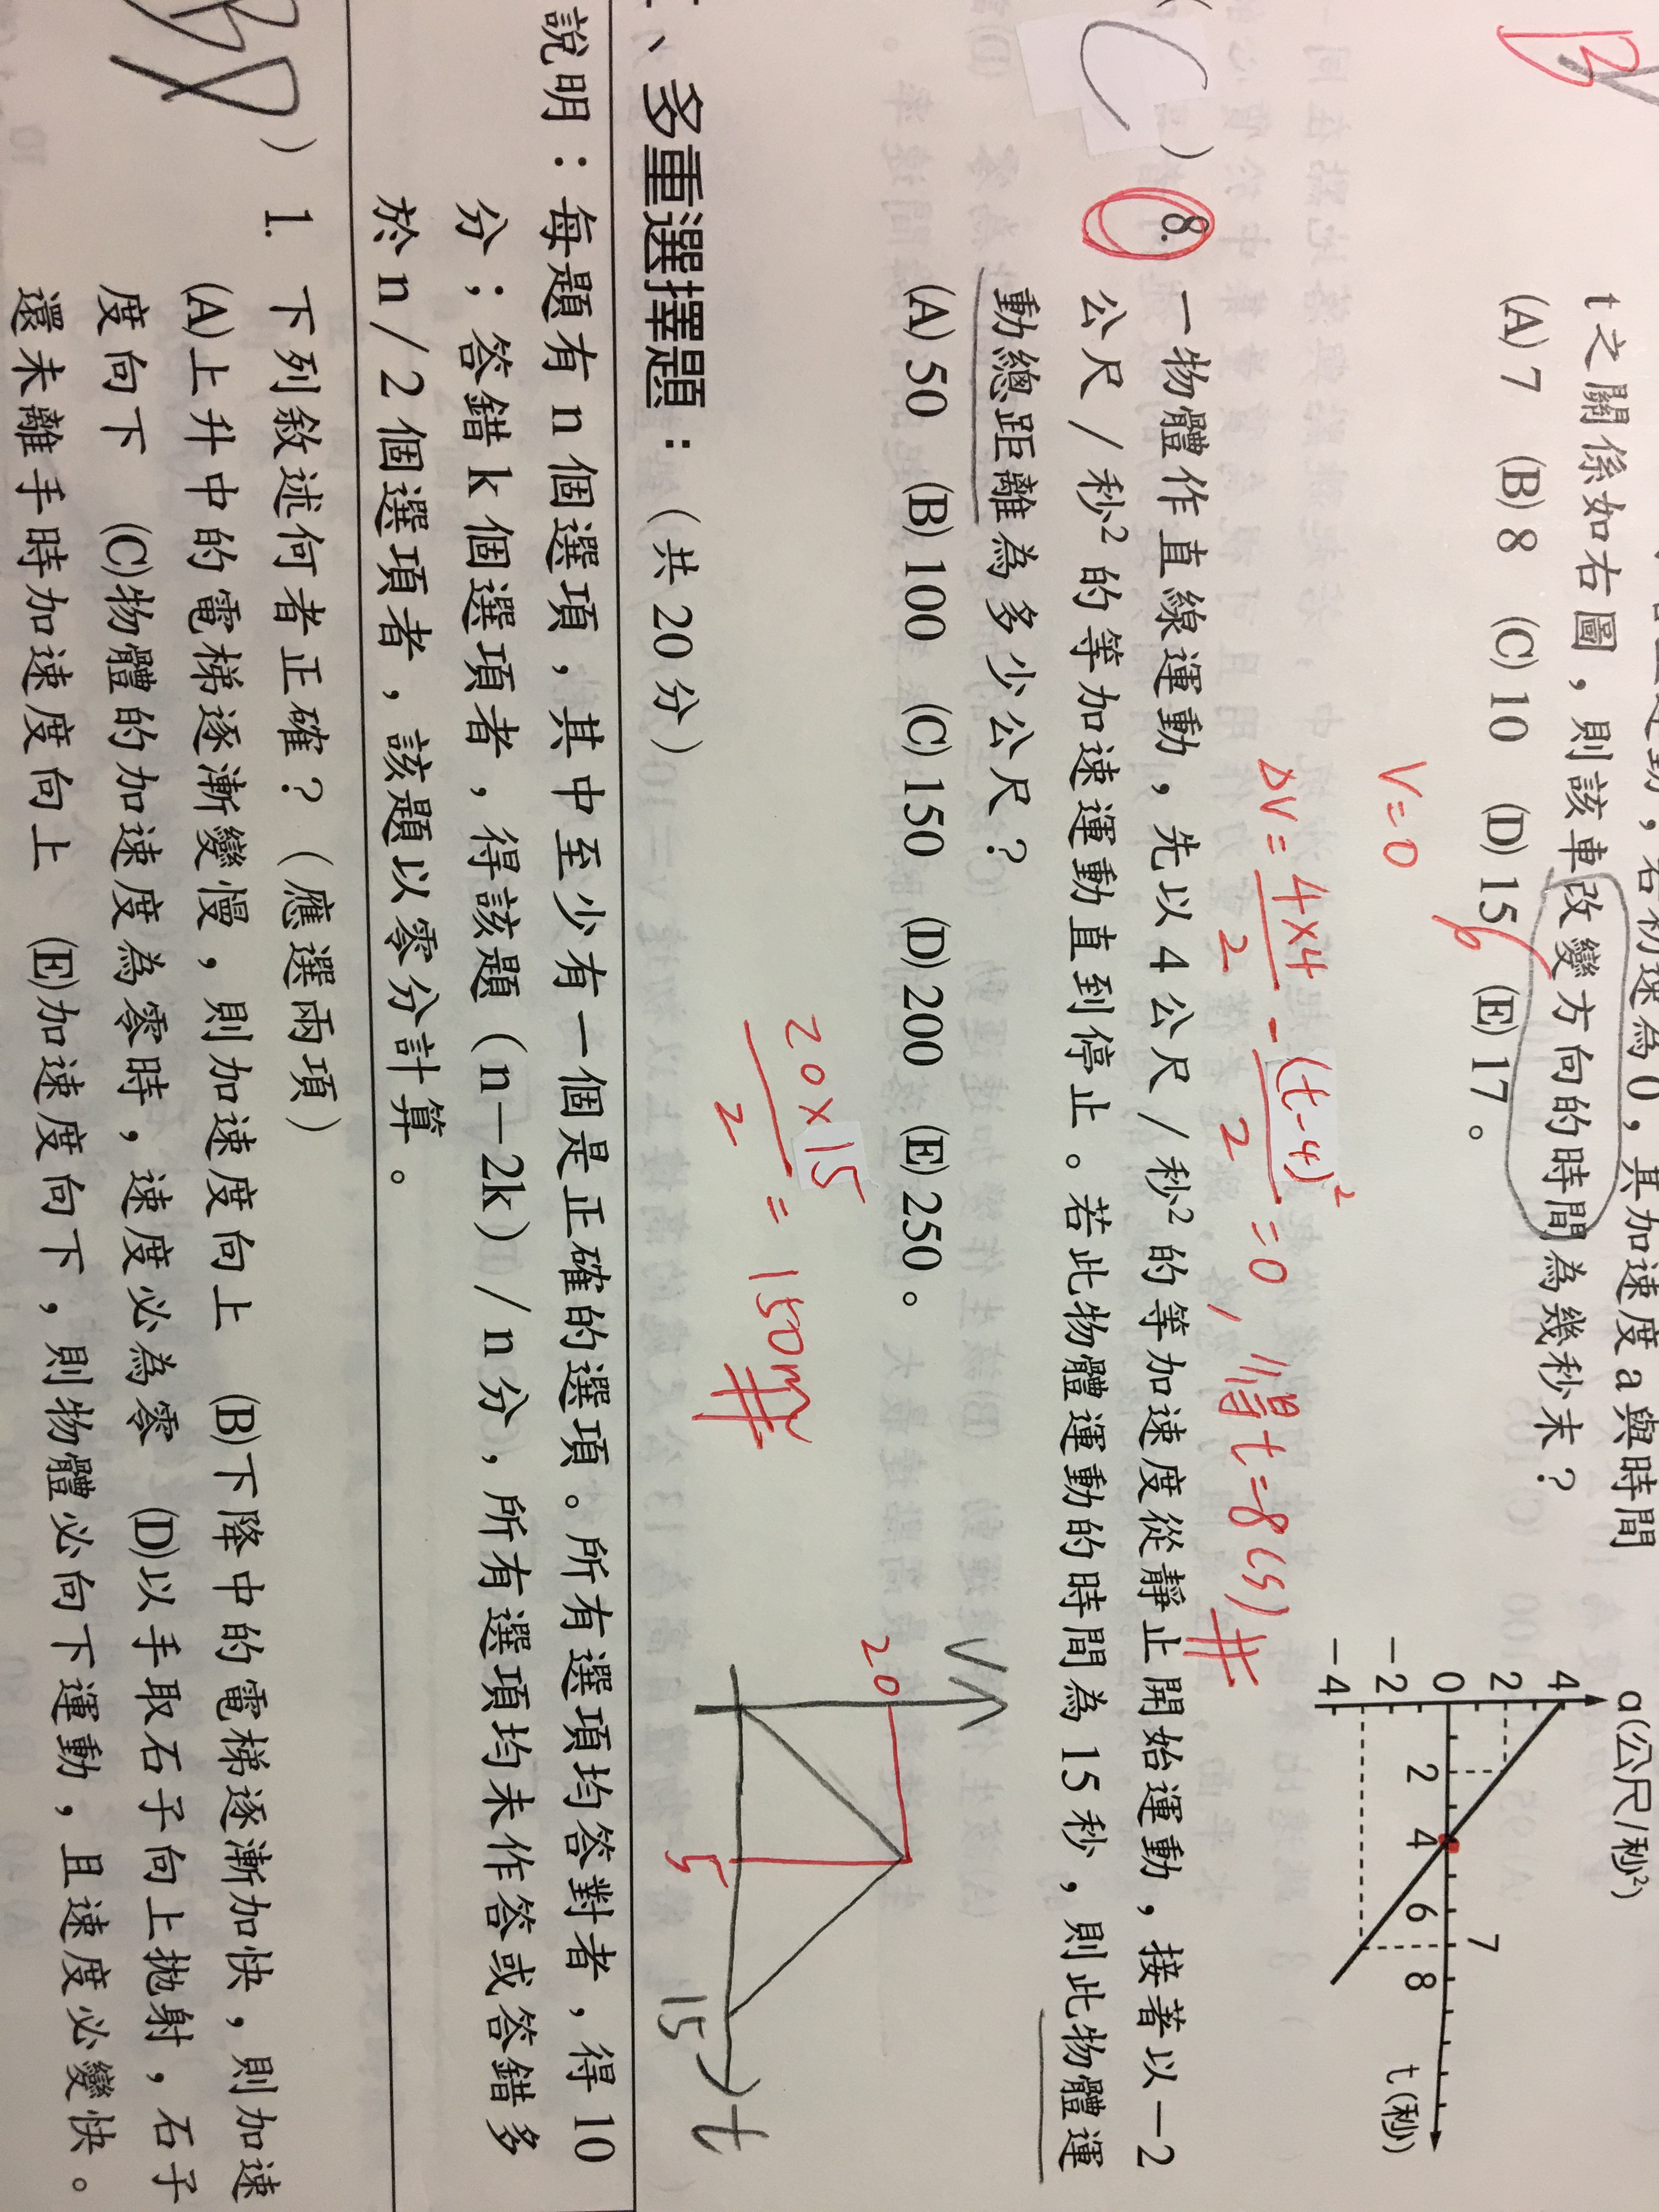 t之關係如右圖，則該車改變方向的時間為幾秒末？
(A) 7 (B) 8 (C) 10 (D) 15 (E) 17。
6
a(公尺/秒²)
4
2
0
-2
-4
2 4 6 7 8
t(秒)
V=0
ΔV= 4×4/2 - (t-4)²/2 =0, 得t=8(s)#
C ) 8. 一物體作直線運動，先以 4 公尺／秒²的等加速度從靜止開始運動，接著以－2
公尺／秒²的等加速運動直到停止。若此物體運動的時間為 15 秒，則此物體運
動總距離為多少公尺？
(A) 50 (B) 100 (C) 150 (D) 200 (E) 250。
20×15/2 = 150m#
V
20
5
15
t
、多重選擇題：（共 20 分）
說明：每題有 n 個選項，其中至少有一個是正確的選項。所有選項均答對者，得 10
分；答錯 k 個選項者，得該題（n－2k）/ n 分，所有選項均未作答或答錯多
於 n / 2 個選項者，該題以零分計算。
) 1. 下列敘述何者正確？（應選兩項）
(A)上升中的電梯逐漸變慢，則加速度向上 (B)下降中的電梯逐漸加快，則加速
度向下 (C)物體的加速度為零時，速度必為零 (D)以手取石子向上拋射，石子
還未離手時加速度向上 (E)加速度向下，則物體必向下運動，且速度必變快。